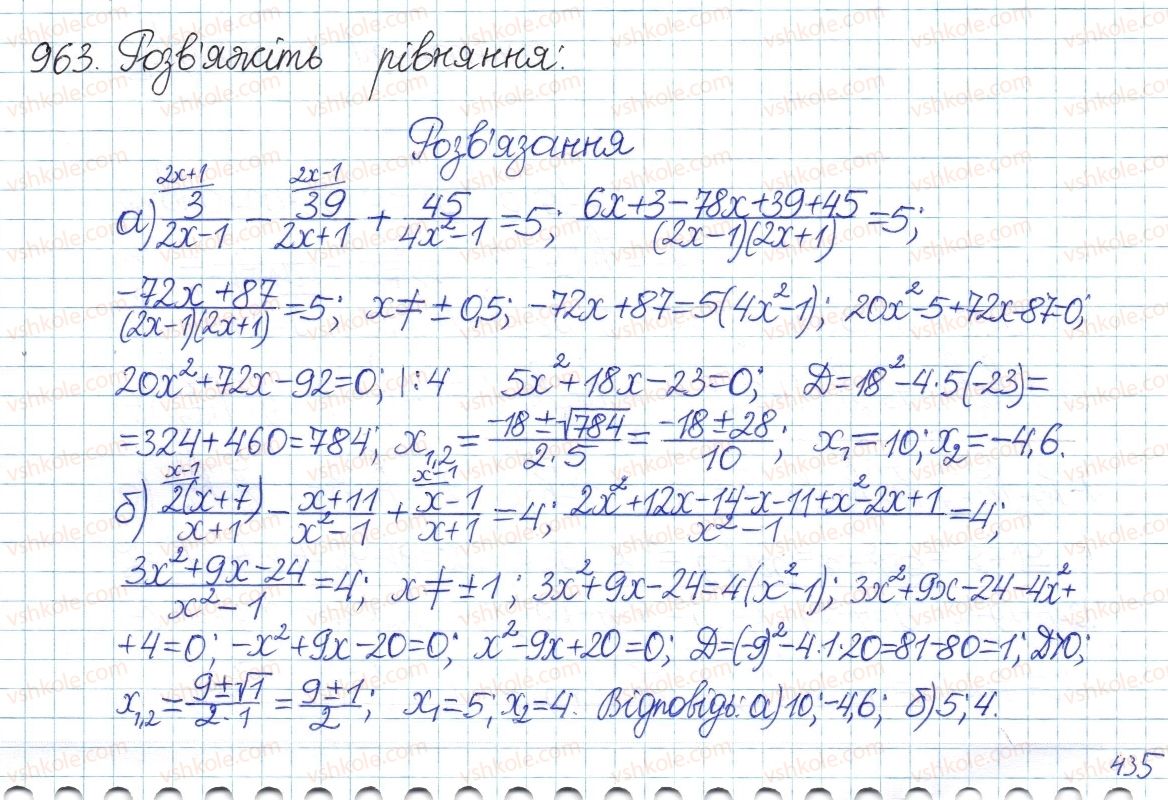 963. Розв'яжіть рівняння:
Розв'язання
а) (2x+1) 3/(2x-1) - (2x-1) 39/(2x+1) + 45/(4x²-1) = 5; (6x+3-78x+39+45)/((2x-1)(2x+1)) = 5;
(-72x+87)/((2x-1)(2x+1)) = 5; x ≠ ± 0,5; -72x+87=5(4x²-1); 20x²-5+72x-87=0;
20x²+72x-92=0; |:4 5x²+18x-23=0; D=18²-4·5(-23)=
=324+460=784; x₁,₂ = (-18±√784)/(2·5) = (-18±28)/10; x₁=10; x₂=-4,6.
б) (x-1) 2(x+7)/(x+1) - (x+11)/(x²-1) + (x-1) (x-1)/(x+1) = 4; (2x²+12x-14-x-11+x²-2x+1)/(x²-1) = 4;
(3x²+9x-24)/(x²-1) = 4; x ≠ ±1; 3x²+9x-24=4(x²-1); 3x²+9x-24-4x²+
+4=0; -x²+9x-20=0; x²-9x+20=0; D=(-9)²-4·1·20=81-80=1; D>0;
x₁,₂ = (9±√1)/(2·1) = (9±1)/2; x₁=5; x₂=4. Відповідь: а) 10; -4,6; б) 5; 4.
435